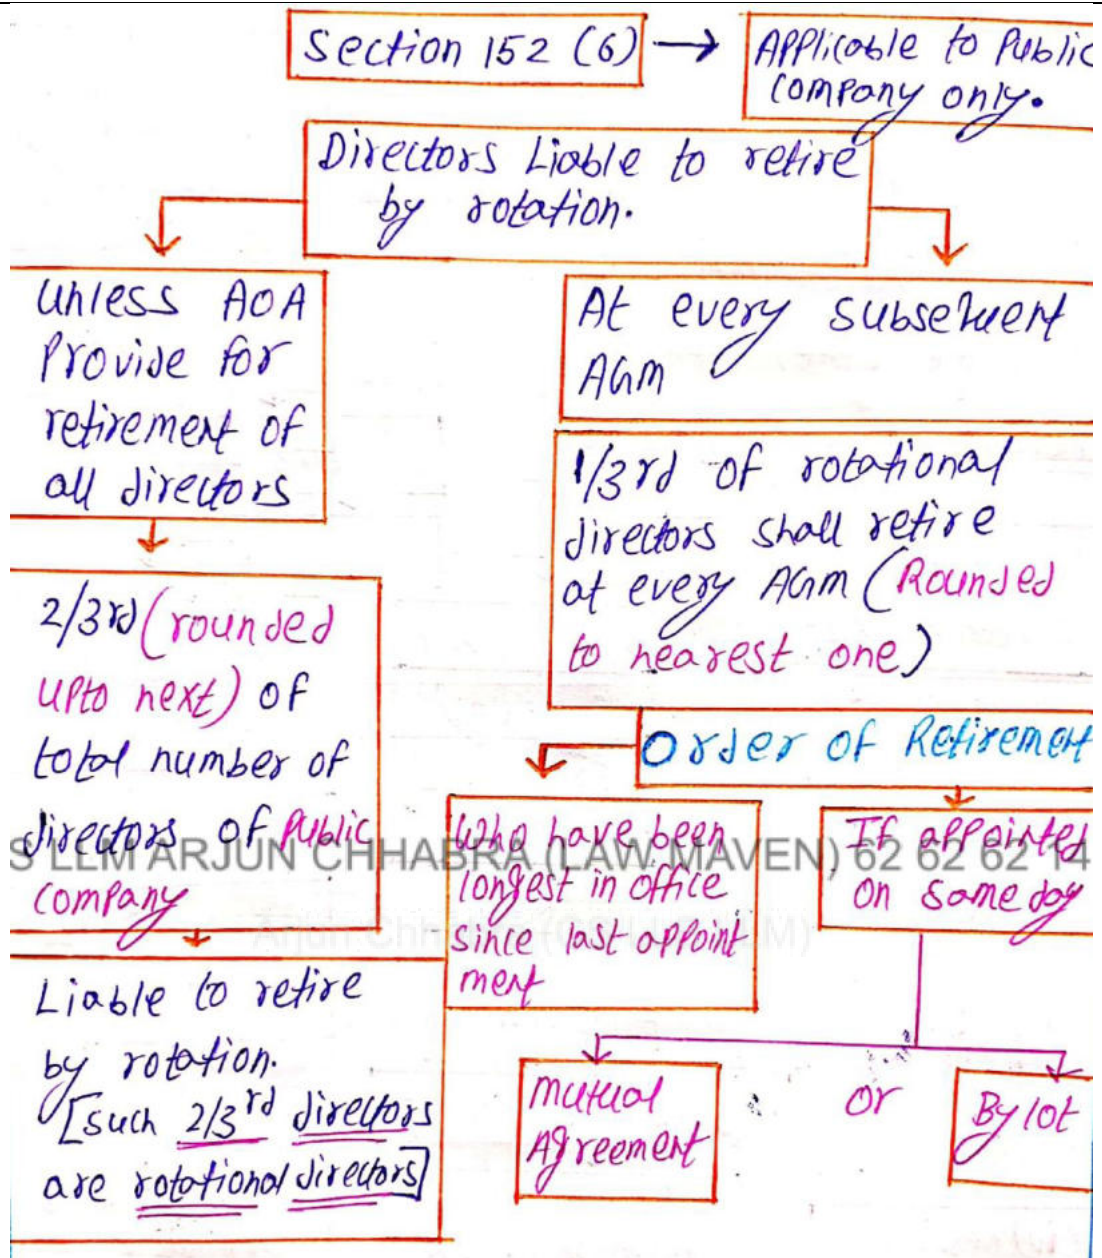 Section 152 (6)
Applicable to Public
company only.
Directors Liable to retire
by rotation.
Unless AOA
Provide for
retirement of
all directors
2/3rd (rounded
upto next) of
total number of
directors of Public
company
Liable to retire
by rotation.
[such 2/3rd directors
are rotational directors]
At every subsequent
AGM
1/3rd of rotational
directors shall retire
at every AGM (Rounded
to nearest one)
Order of Retirement
Who have been
longest in office
since last appoint
ment
If appointed
on same day
Mutual
Agreement
or
By lot
S LLM ARJUN CHHABRA (LAW MAVEN) 62 62 62 14